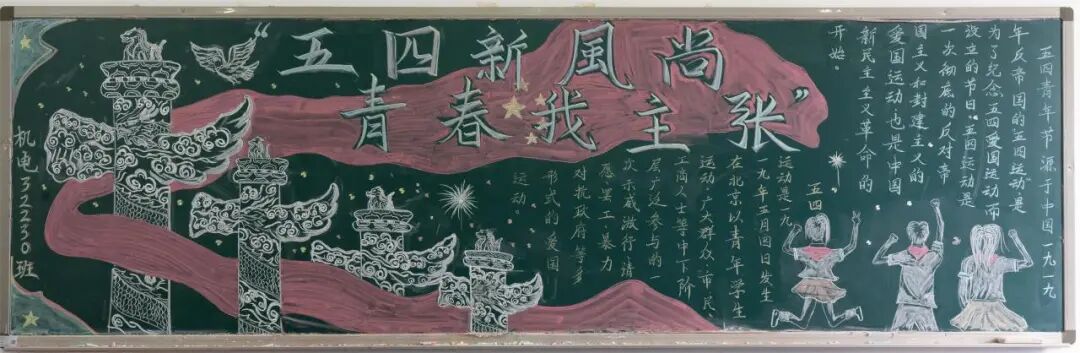 “五四新風尚
青春我主张”
五四青年节源于中国一九一九
年反帝国的五四运动”是
为了纪念五四爱国运动而
设立的节日“五四运动是
一次彻底的反对帝
国主义和封建主义的
爱国运动也是中国
新民主主义革命的
开始
五四
运动是一九
一九年五月四日发生
在北京以青年学生
运动广大群众市民
工商人士等中下阶
层广泛参与的一
次示威游行请
愿罢工暴力
对抗政府等多
形式的爱国
运动
机电32230班